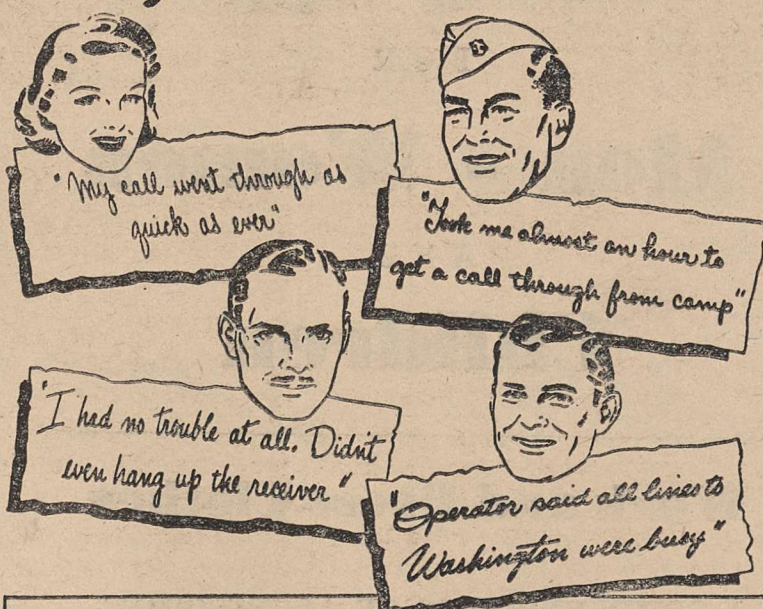 "My call went through as
quick as ever"
"Took me almost an hour to
get a call through from camp"
"I had no trouble at all. Didn't
even hang up the receiver"
"Operator said all lines to
Washington were busy"